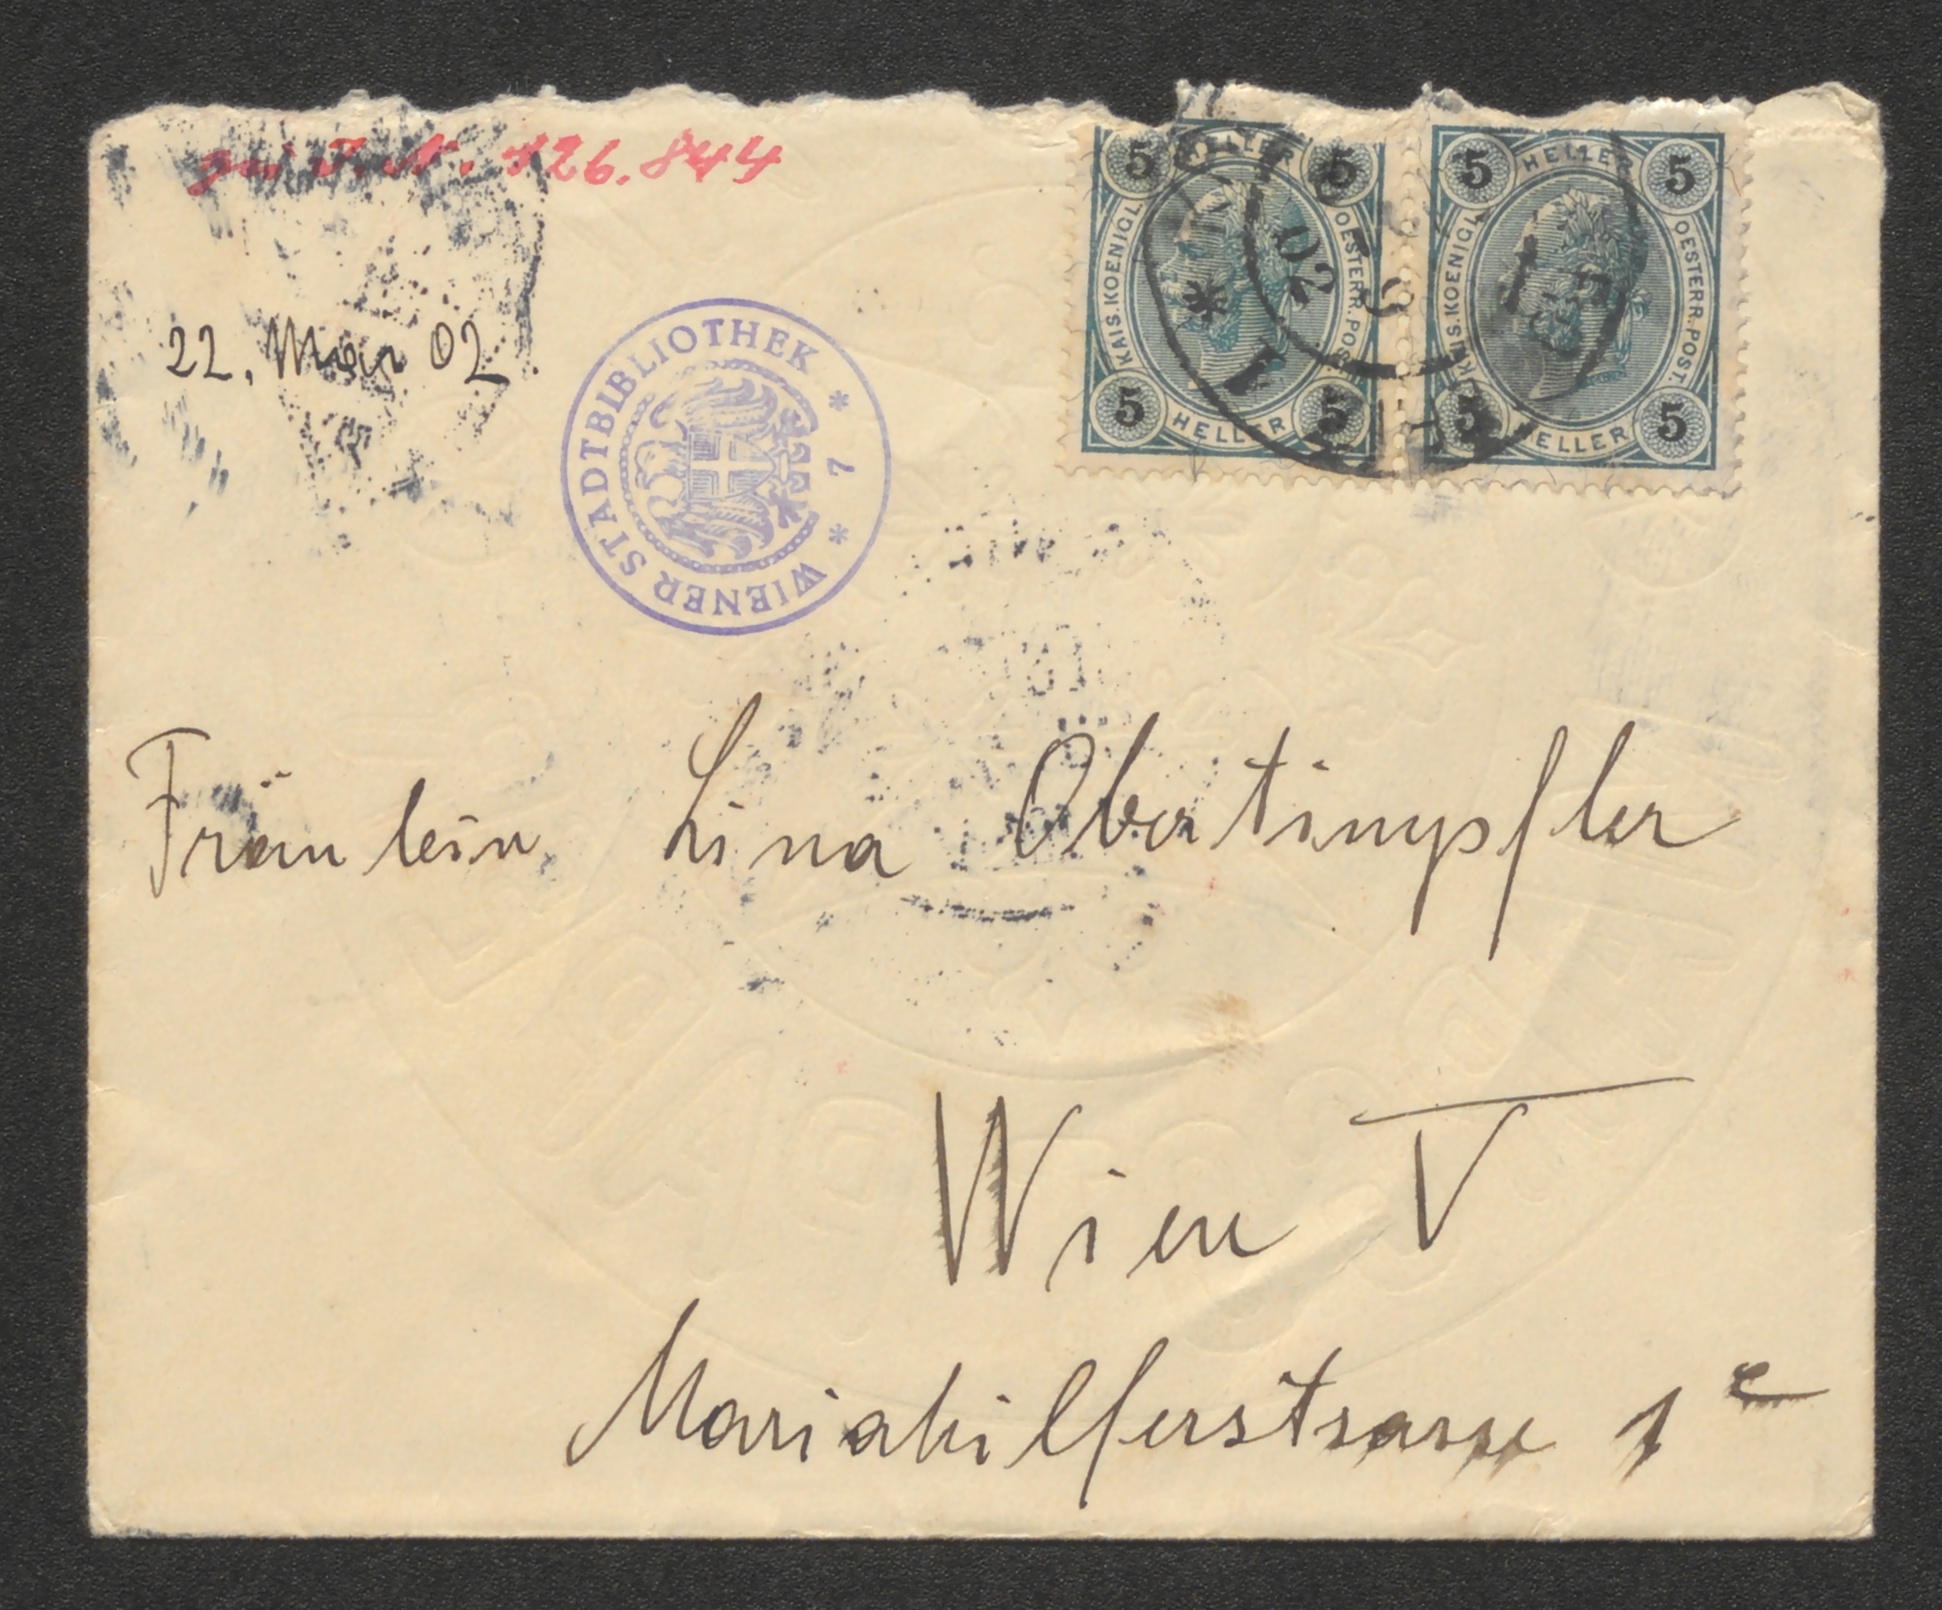 zu I. N. 126.844
22. Mai 02.
WIENER STADTBIBLIOTHEK * 7 *
5 HELLER 5
KAIS. KOENIGL. OESTERR. POST.
5 HELLER 5
5 HELLER 5
KAIS. KOENIGL. OESTERR. POST.
5 HELLER 5
02
Fräulein Lina Obertimpfler
Wien V
Mariahilferstrasse 1 c